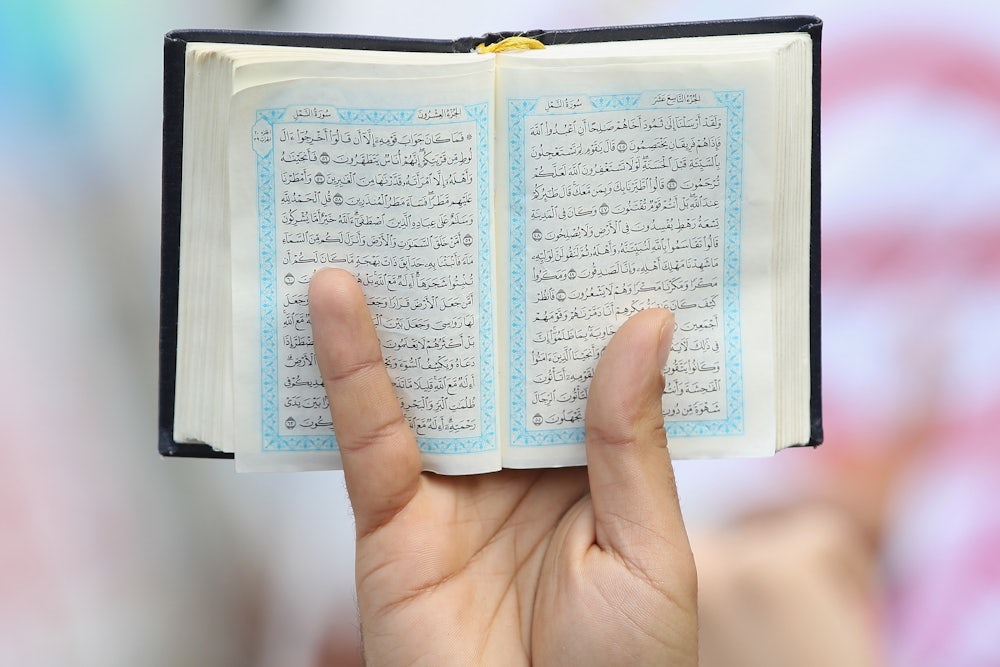 الجُزْءُ التَّاسِعَ عَشَرَ سُورَةُ النَّمْلِ
وَلَقَدْ أَرْسَلْنَآ إِلَىٰ ثَمُودَ أَخَاهُمْ صَٰلِحًا أَنِ ٱعْبُدُوا۟ ٱللَّهَ
فَإِذَا هُمْ فَرِيقَانِ يَخْتَصِمُونَ ٤٥ قَالَ يَٰقَوْمِ لِمَ تَسْتَعْجِلُونَ
بِٱلسَّيِّئَةِ قَبْلَ ٱلْحَسَنَةِ لَوْلَا تَسْتَغْفِرُونَ ٱللَّهَ لَعَلَّكُمْ
تُرْحَمُونَ ٤٦ قَالُوا۟ ٱطَّيَّرْنَا بِكَ وَبِمَن مَّعَكَ قَالَ طَٰٓئِرُكُمْ
عِندَ ٱللَّهِ بَلْ أَنتُمْ قَوْمٌ تُفْتَنُونَ ٤٧ وَكَانَ فِى ٱلْمَدِينَةِ
تِسْعَةُ رَهْطٍ يُفْسِدُونَ فِى ٱلْأَرْضِ وَلَا يُصْلِحُونَ ٤٨
قَالُوا۟ تَقَاسَمُوا۟ بِٱللَّهِ لَنُبَيِّتَنَّهُۥ وَأَهْلَهُۥ ثُمَّ لَنَقُولَنَّ لِوَلِيِّهِۦ
مَا شَهِدْنَا مَهْلِكَ أَهْلِهِۦ وَإِنَّا لَصَٰدِقُونَ ٤٩ وَمَكَرُوا۟
مَكْرًا وَمَكَرْنَا مَكْرًا وَهُمْ لَا يَشْعُرُونَ ٥٠ فَٱنظُرْ
كَيْفَ كَانَ مَكْرِهِمْ أَنَّا دَمَّرْنَٰهُمْ وَقَوْمَهُمْ
أَجْمَعِينَ خَاوِيَةًۢ بِمَا ظَلَمُوٓا۟ إِنَّ
فِى ذَٰلِكَ وَأَنجَيْنَا ٱلَّذِينَ ءَامَنُوا۟
وَكَانُوا۟ يَتَّقُونَ لِقَوْمِهِۦٓ أَتَأْتُونَ
ٱلْفَٰحِشَةَ لَتَأْتُونَ ٱلرِّجَالَ
شَهْوَةً مِّن دُونِ تَجْهَلُونَ ٥٥
الجُزْءُ العِشْرُونَ سُورَةُ النَّمْلِ
۞ فَمَا كَانَ جَوَابَ قَوْمِهِۦٓ إِلَّآ أَن قَالُوٓا۟ أَخْرِجُوٓا۟ ءَالَ
لُوطٍ مِّن قَرْيَتِكُمْ إِنَّهُمْ أُنَاسٌ يَتَطَهَّرُونَ ٥٦ فَأَنجَيْنَٰهُ
وَأَهْلَهُۥٓ إِلَّا ٱمْرَأَتَهُۥ قَدَّرْنَٰهَا مِنَ ٱلْغَٰبِرِينَ ٥٧ وَأَمْطَرْنَا
عَلَيْهِم مَّطَرًا فَسَآءَ مَطَرُ ٱلْمُنذَرِينَ ٥٨ قُلِ ٱلْحَمْدُ لِلَّهِ
وَسَلَٰمٌ عَلَىٰ عِبَادِهِ ٱلَّذِينَ ٱصْطَفَىٰٓ ءَآللَّهُ خَيْرٌ أَمَّا يُشْرِكُونَ
٥٩ أَمَّنْ خَلَقَ ٱلسَّمَٰوَٰتِ وَٱلْأَرْضَ وَأَنزَلَ لَكُم مِّنَ ٱلسَّمَآءِ
مَآءً فَأَنۢبَتْنَا بِهِۦ حَدَآئِقَ ذَاتَ بَهْجَةٍ مَّا كَانَ لَكُمْ أَن
تُنۢبِتُوا۟ شَجَرَهَآ أَءِلَٰهٌ مَّعَ ٱللَّهِ بَلْ ٦٠
أَمَّن جَعَلَ ٱلْأَرْضَ قَرَارًا وَجَعَلَ وَجَعَلَ
لَهَا رَوَٰسِىَ وَجَعَلَ بَيْنَ أَءِلَٰهٌ مَّعَ ٱللَّهِ
بَلْ أَكْثَرُهُمْ لَا يَعْلَمُونَ ٱلْمُضْطَرَّ إِذَا
دَعَاهُ وَيَكْشِفُ ٱلسُّوٓءَ ٱلْأَرْضِ
أَءِلَٰهٌ مَّعَ ٱللَّهِ قَلِيلًا مَّا يَهْدِيكُمْ فِى
ظُلُمَٰتِ ٱلْبَرِّ وَٱلْبَحْرِ بَيْنَ يَدَىْ
رَحْمَتِهِۦٓ أَءِلَٰهٌ مَّعَ ٱللَّهِ ٦٣